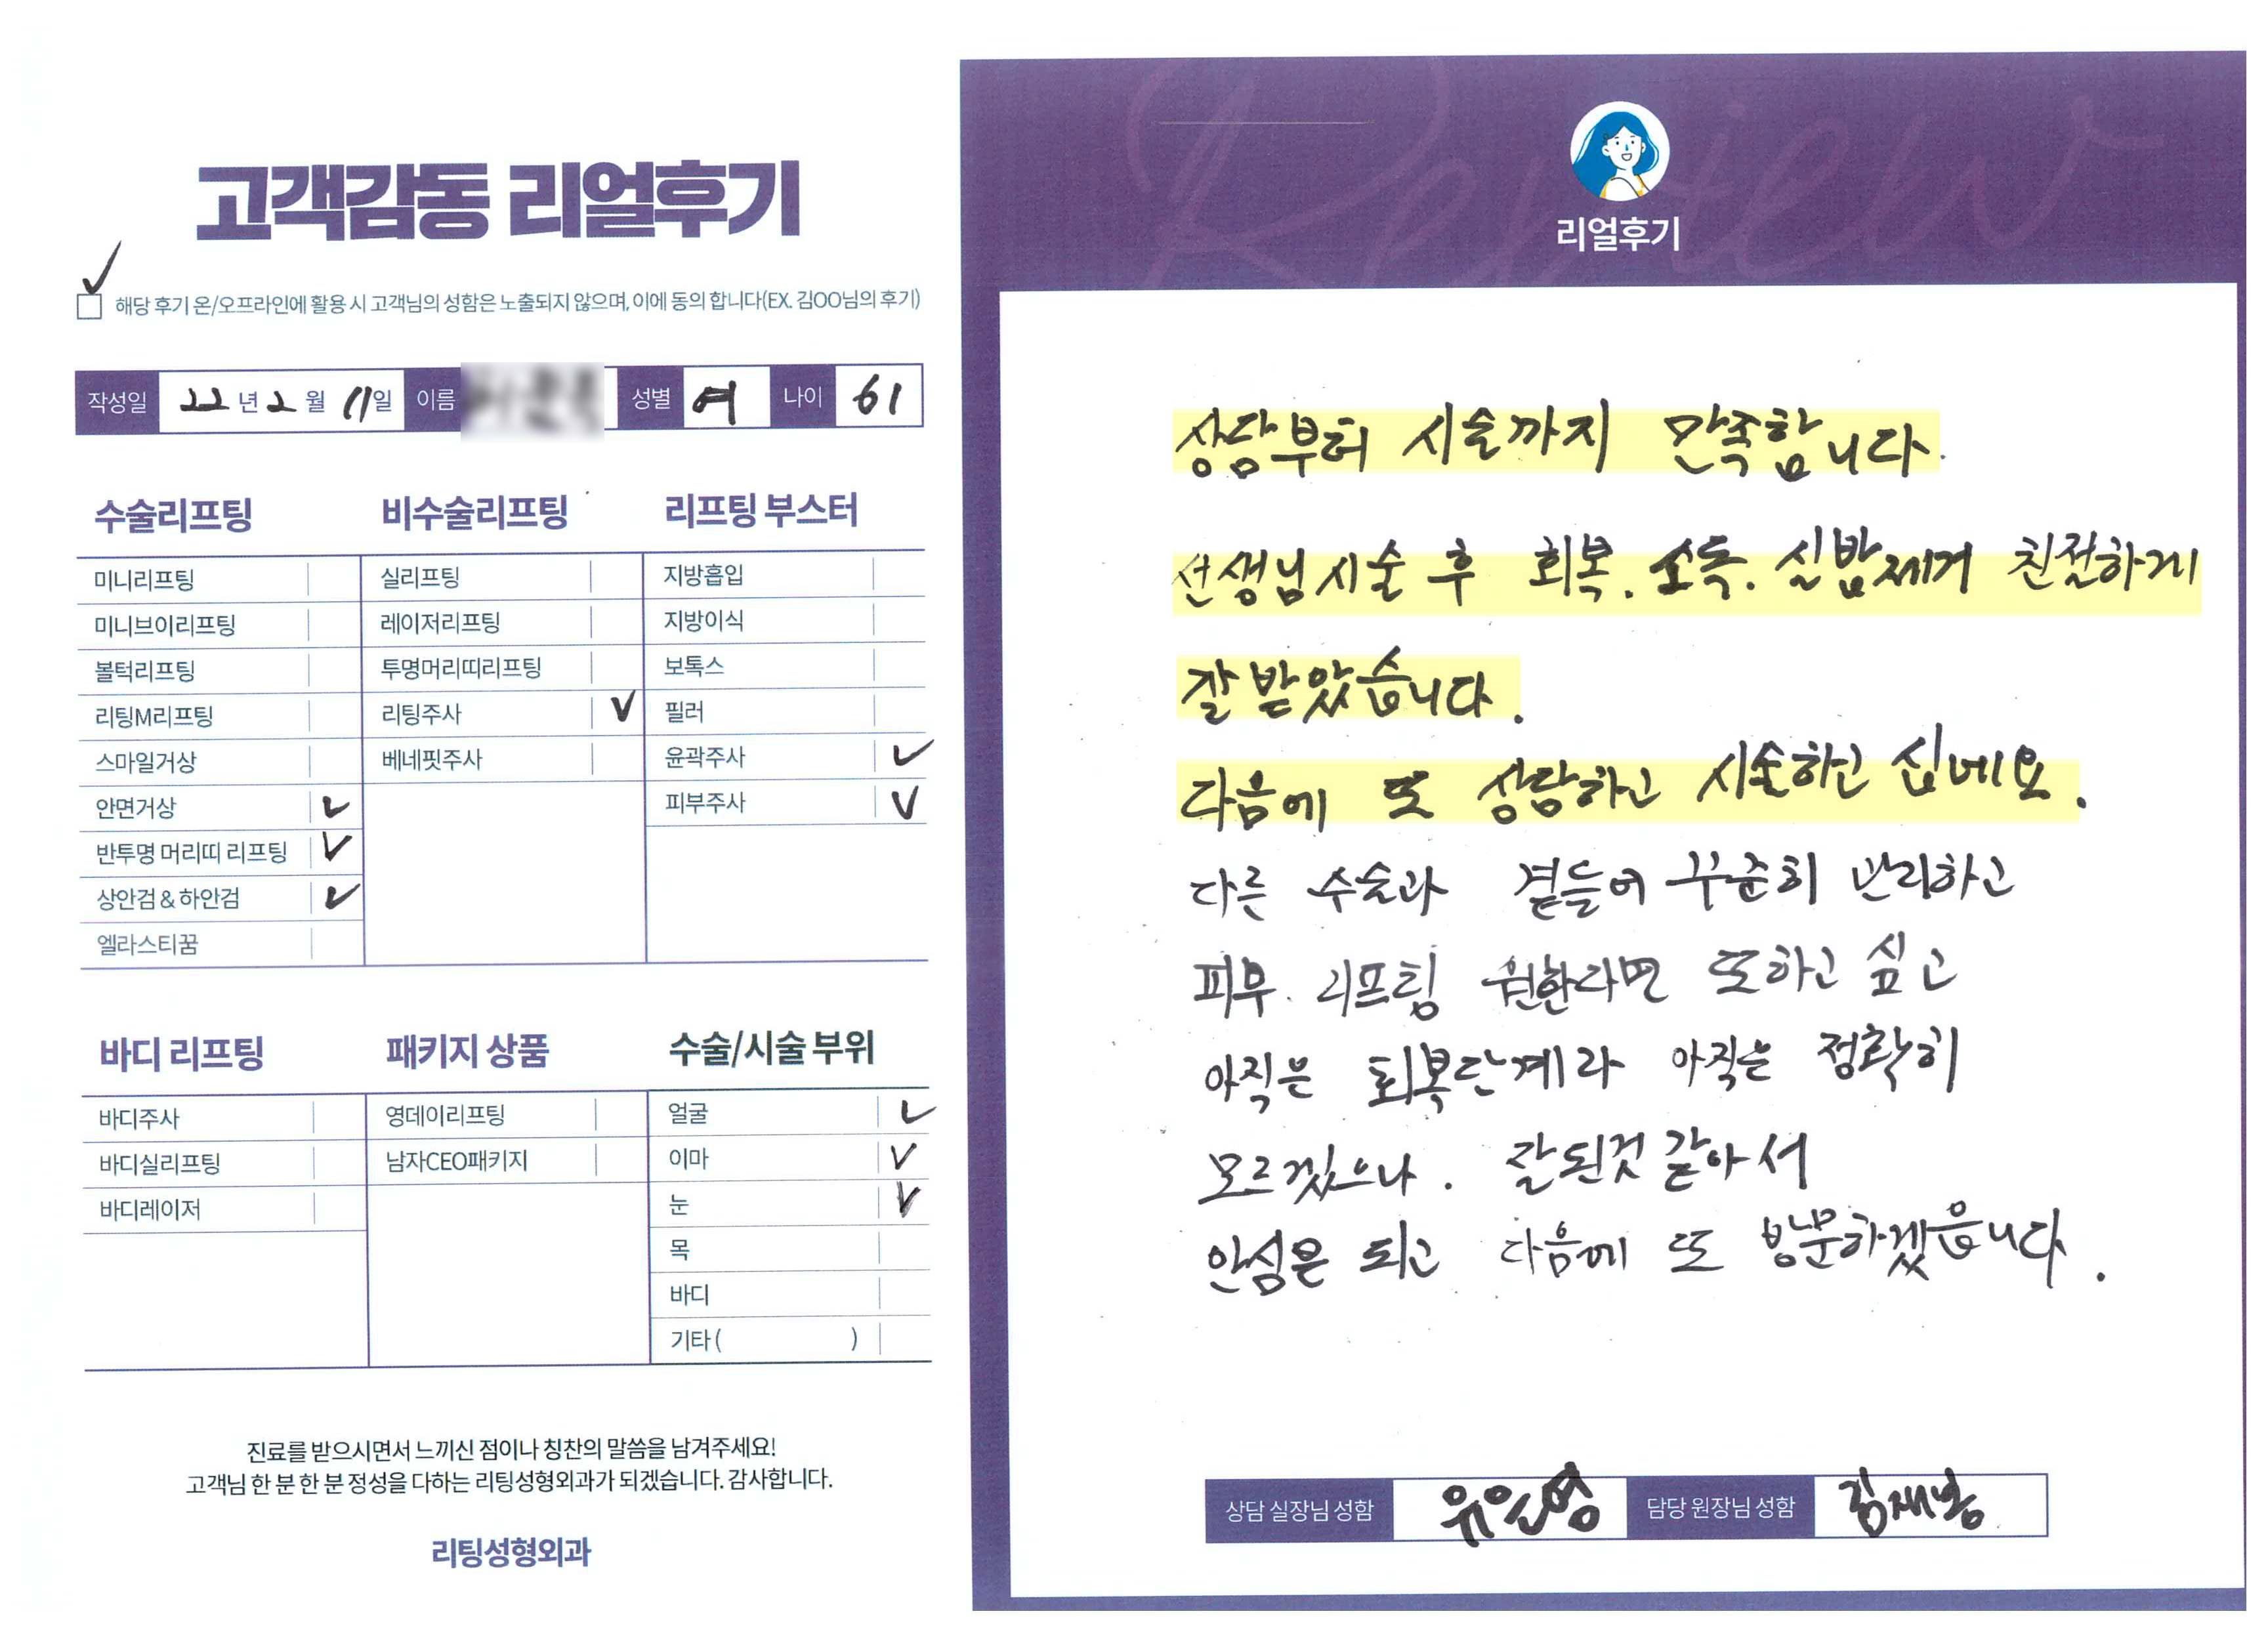 고객감동 리얼후기
✓
☐ 해당 후기 온/오프라인에 활용 시 고객님의 성함은 노출되지 않으며, 이에 동의 합니다(EX. 김OO님의 후기)
작성일 22년 2월 11일 이름 성별 여 나이 61
수술리프팅 비수술리프팅 리프팅 부스터
미니리프팅 실리프팅 지방흡입
미니브이리프팅 레이저리프팅 지방이식
볼턱리프팅 투명머리띠리프팅 보톡스
리팅M리프팅 리팅주사 ✓ 필러
스마일거상 베네핏주사 윤곽주사 ✓
안면거상 ✓ 피부주사 ✓
반투명 머리띠 리프팅 ✓
상안검 & 하안검 ✓
엘라스티꿈
바디 리프팅 패키지 상품 수술/시술 부위
바디주사 영데이리프팅 얼굴 ✓
바디실리프팅 남자CEO패키지 이마 ✓
바디레이저 눈 ✓
목
바디
기타 ( )
진료를 받으시면서 느끼신 점이나 칭찬의 말씀을 남겨주세요!
고객님 한 분 한 분 정성을 다하는 리팅성형외과가 되겠습니다. 감사합니다.
리팅성형외과
Review
리얼후기
상담부터 시술까지 만족합니다.
선생님시술 후 회복. 소독. 실밥제거 친절하게
잘 받았습니다.
다음에 또 상담하고 시술하고 십네요.
다른 수술과 곁들어 꾸준히 관리하고
피부. 리프팅 원한다면 또하고 싶고
아직은 회복단계라 아직은 정확히
모르겠으나. 잘된것 같아서
안심은 되고 다음에 또 방문하겠읍니다.
상담 실장님 성함 유은영 담당 원장님 성함 김재봉